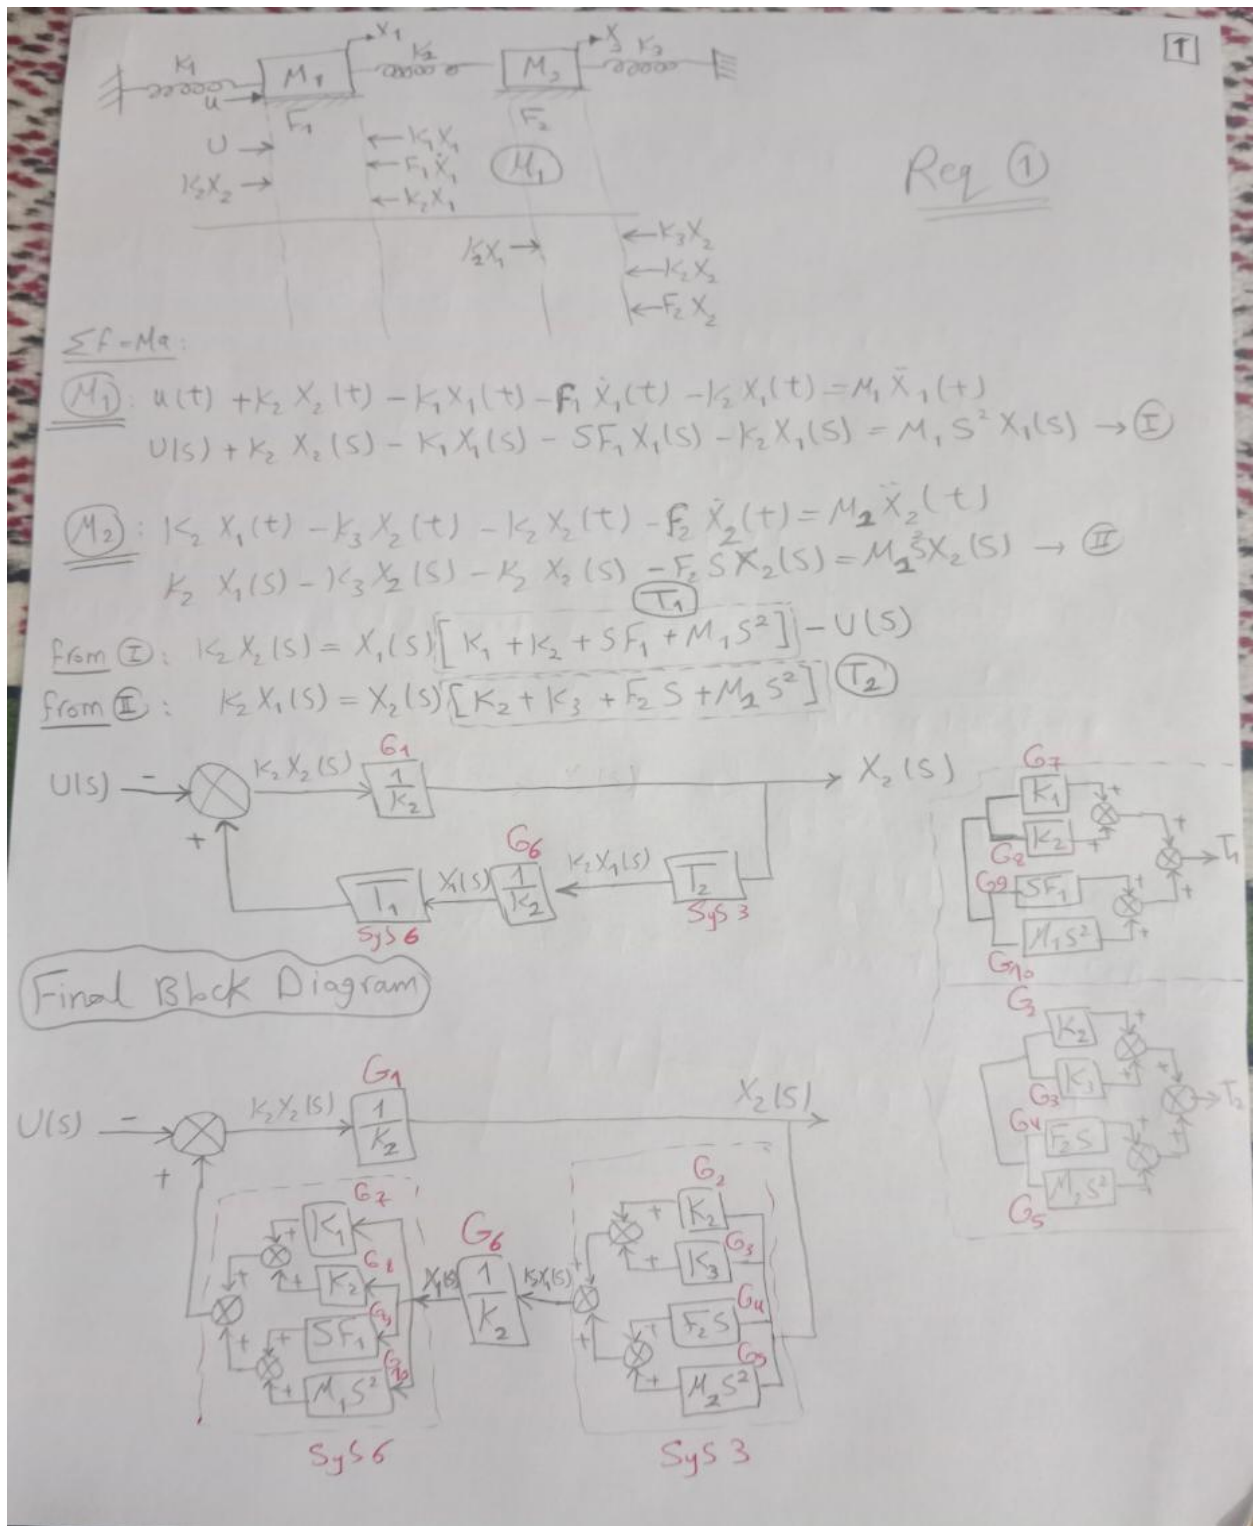 1
K₁ X₁ K₂ X₂ K₃
M₁ M₂
u
F₁ F₂
Req ①
U K₁X₁
F₁Ẋ₁ M₁
K₂X₂ K₂X₁
K₂X₁ K₃X₂
K₂X₂
F₂X₂
Σf=Ma:
M₁: u(t) + K₂ X₂(t) - K₁X₁(t) - F₁ Ẋ₁(t) - K₂ X₁(t) = M₁ Ẍ₁(t)
U(s) + K₂ X₂(s) - K₁X₁(s) - SF₁ X₁(s) - K₂ X₁(s) = M₁ S² X₁(s) → Ⅰ
M₂: K₂ X₁(t) - K₃ X₂(t) - K₂ X₂(t) - F₂ Ẋ₂(t) = M₂ Ẍ₂(t)
K₂ X₁(s) - K₃ X₂(s) - K₂ X₂(s) - F₂ S X₂(s) = M₂S²X₂(s) → Ⅱ
T₁
from Ⅰ: K₂ X₂(s) = X₁(s)[K₁ + K₂ + SF₁ + M₁S²] - U(s)
from Ⅱ: K₂ X₁(s) = X₂(s)[K₂ + K₃ + F₂ S + M₂ S²] T₂
G₁
U(s) - K₂ X₂(s) 1/K₂ X₂(s)
+
G₆
T₁ X₁(s) 1/K₂ K₂X₁(s) T₂
Sys 6 Sys 3
G7
K₁ +
K₂ + +
G8 T₁
G9 SF₁ + +
M₁S² +
G10
G2
K₂ +
K₃ + +
G3 T₂
G4 F₂S + +
M₂S² +
G5
Final Block Diagram
G1
U(s) - K₂X₂(s) 1/K₂ X₂(s)
+
G7
+ K₁
G8
+ K₂
+
G9
+ + SF₁
G10
+ M₁S²
Sys 6
X₁(s) G6 1/K₂ K₂X₁(s)
G2
+ K₂
G3
+ K₃
+
G4
+ + F₂S
G5
+ M₂S²
Sys 3